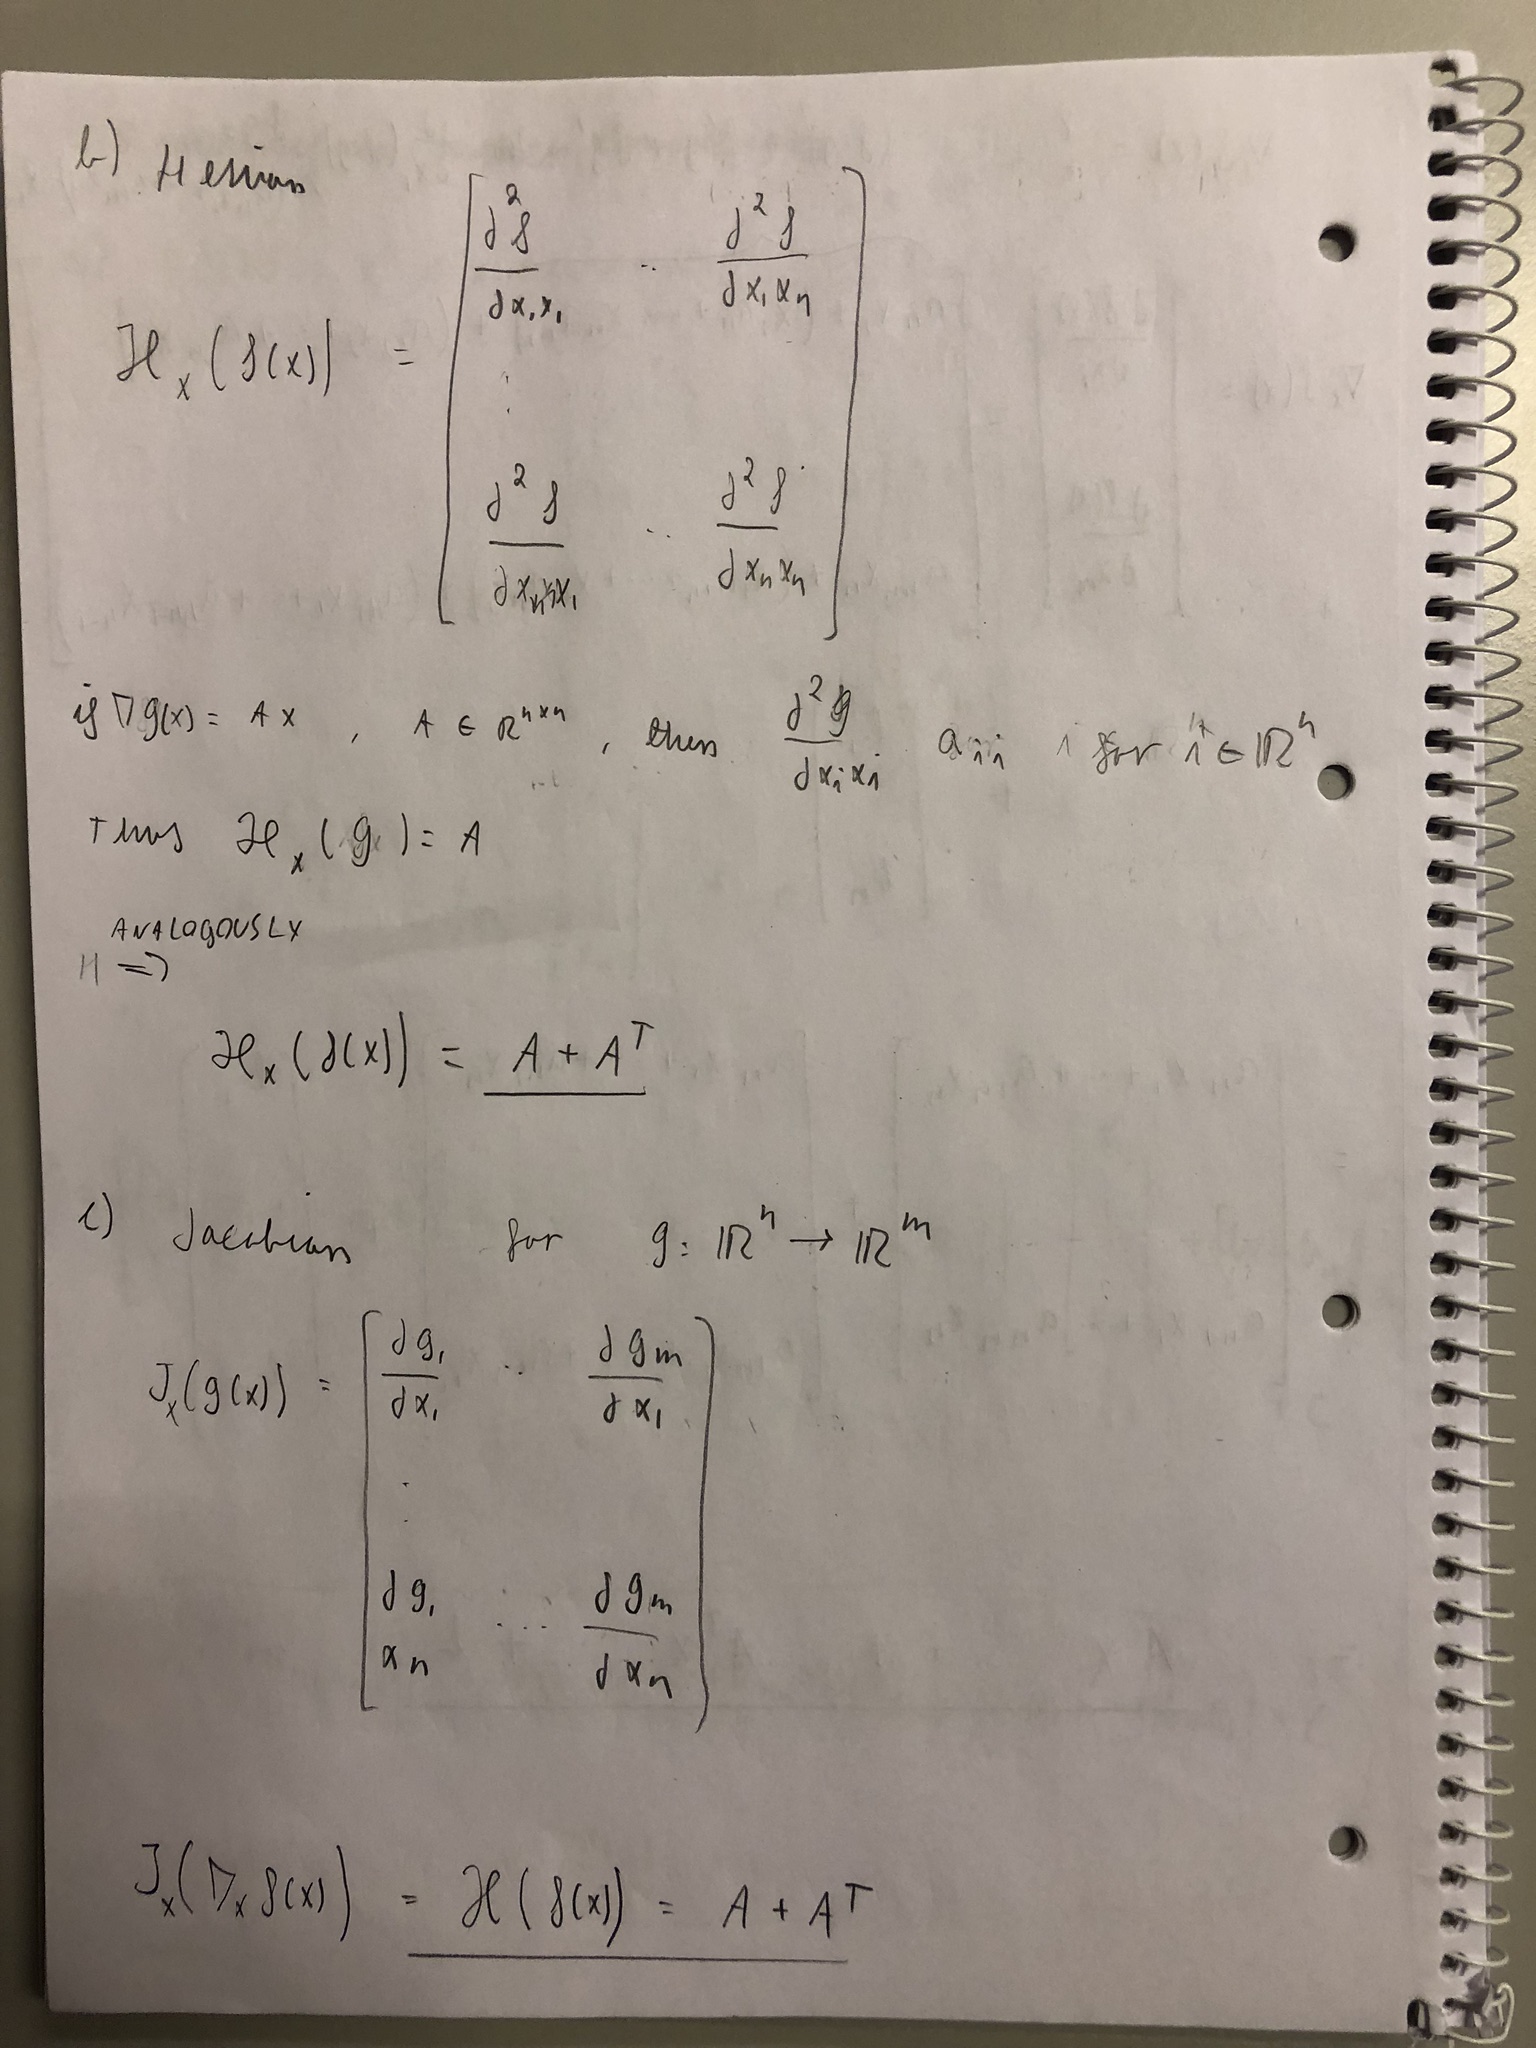 b) Hessian
ℋₓ(f(x)) = [ ∂²f/∂x₁x₁ ·· ∂²f/∂x₁xₙ
⋮
∂²f/∂xₙx₁ ·· ∂²f/∂xₙxₙ ]
if ∇g(x) = Ax , A ∈ ℝⁿˣⁿ , then ∂²g/∂xᵢxⱼ for ∈ ℝⁿ
Thus ℋₓ(g) = A
ANALOGOUSLY
H =>
ℋₓ(f(x)) = A + Aᵀ
c) Jacobian for g: ℝⁿ → ℝᵐ
Jₓ(g(x)) = [ ∂g₁/∂x₁ ·· ∂gₘ/∂x₁
⋮
∂g₁ xₙ ... ∂gₘ/∂xₙ ]
Jₓ(∇ₓ f(x)) = ℋ(f(x)) = A + Aᵀ